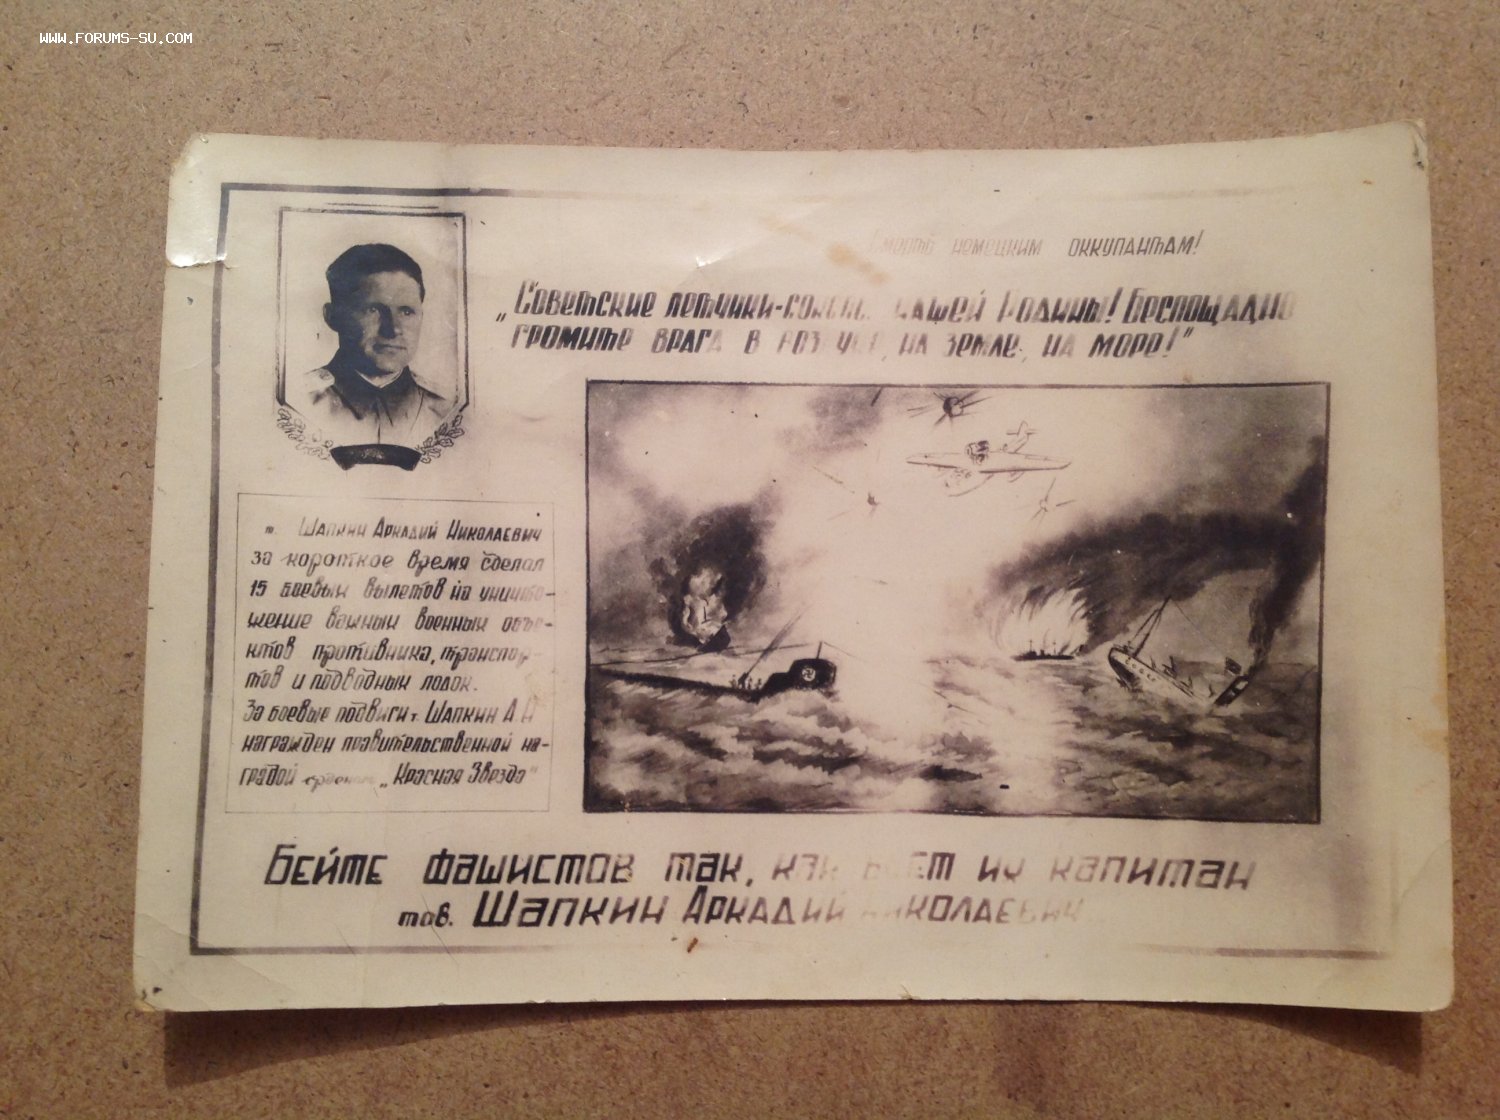 WWW.FORUMS-SU.COM
Смерть немецким оккупантам!
„Советские летчики-соколы нашей Родины! Беспощадно
громите врага в воздухе, на земле, на море!"
т. Шапкин Аркадий Николаевич
за короткое время сделал
15 боевых вылетов на уничто-
жение важных военных объе-
ктов противника, транспор-
тов и подводных лодок.
За боевые подвиги т. Шапкин А.Н
награжден правительственной на-
градой орденом „Красная Звезда"
Бейте фашистов так, как бьет их капитан
тов. Шапкин Аркадий Николаевич